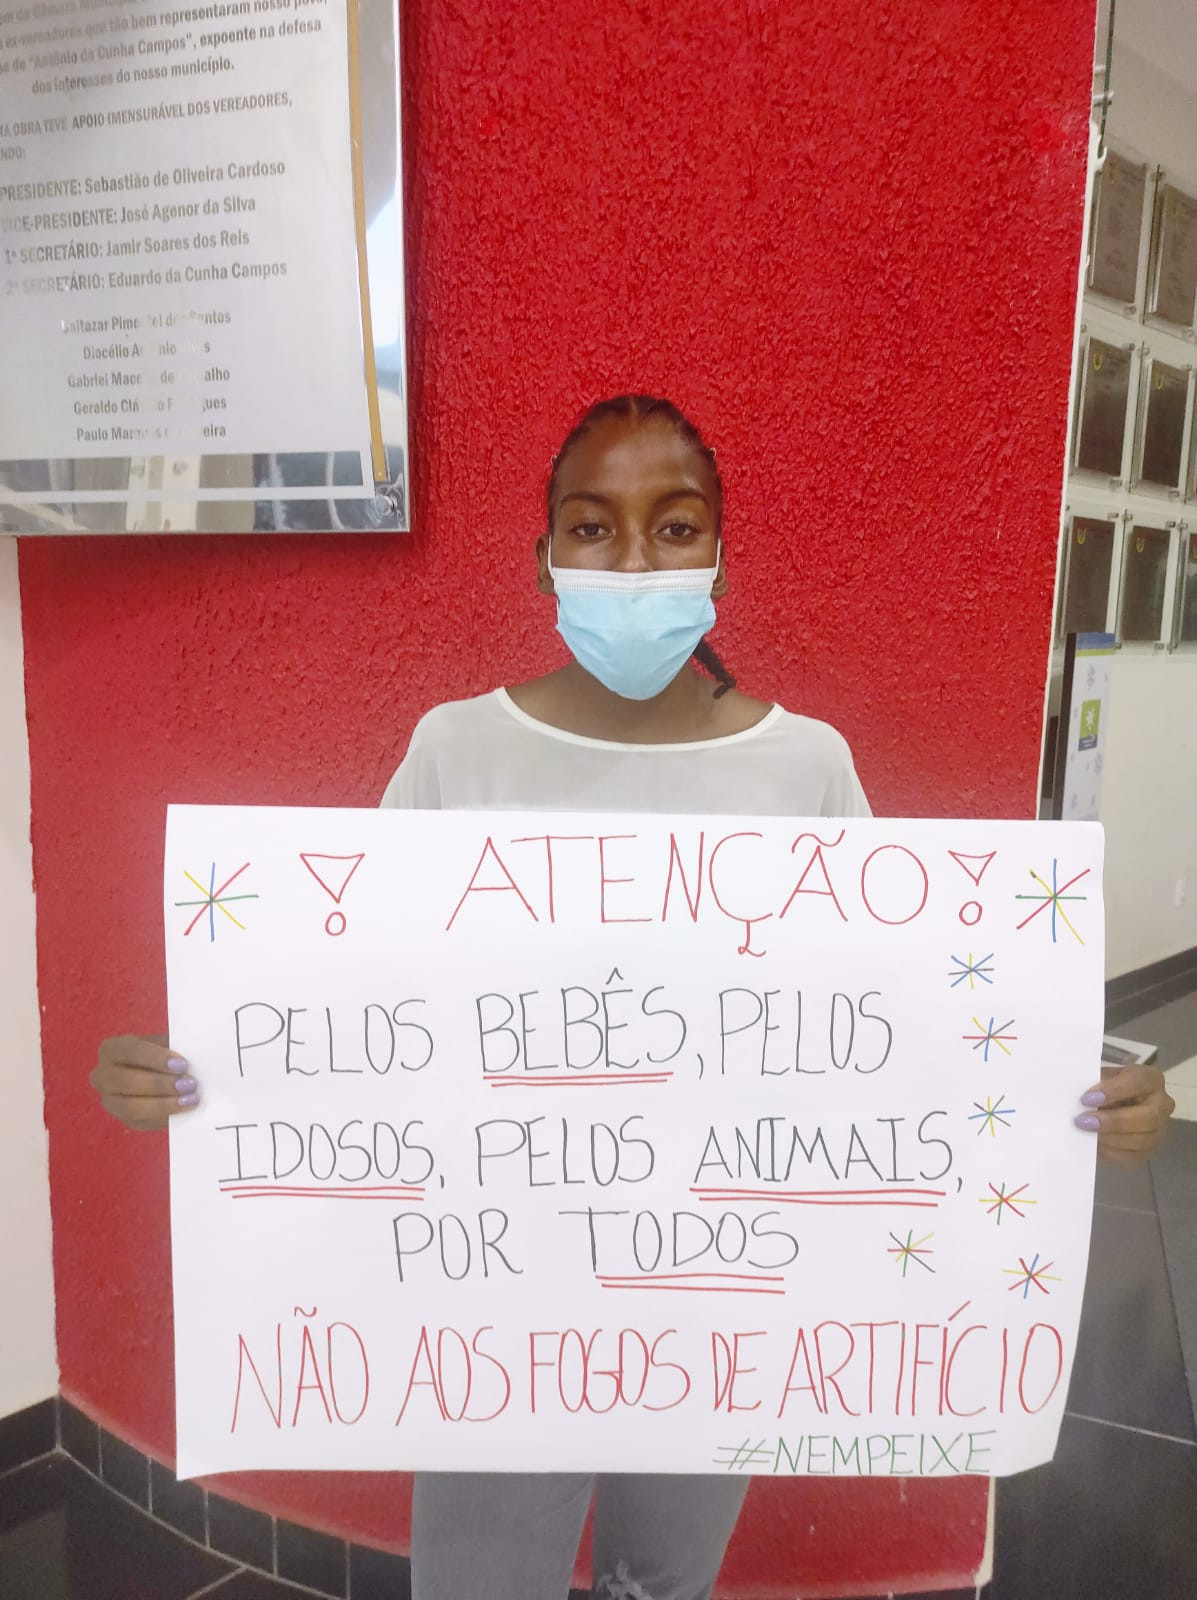 da Câmara Municipal
ex-vereadores que tão bem representaram nosso povo,
de "Antônio da Cunha Campos", expoente na defesa
dos interesses do nosso município.
OBRA TEVE APOIO IMENSURÁVEL DOS VEREADORES,
PRESIDENTE: Sebastião de Oliveira Cardoso
VICE-PRESIDENTE: José Agenor da Silva
1º SECRETÁRIO: Jamir Soares dos Reis
2º SECRETÁRIO: Eduardo da Cunha Campos
Baltazar
Diocélio
Gabriel
Geraldo
Paulo
! ATENÇÃO!
PELOS BEBÊS, PELOS
IDOSOS, PELOS ANIMAIS,
POR TODOS
NÃO AOS FOGOS DE ARTIFÍCIO
#NEMPEIXE